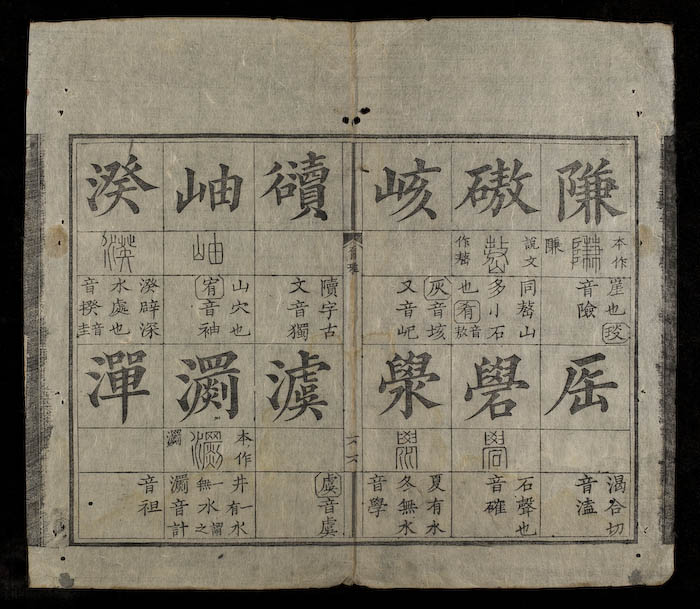 隒
本作
厓也
琰
音險
磝
說文
作嶅
同嶅山
多小石
也
肴
音敖
峐
灰
音垓
又音屺
厒
渴合切
音溘
礐
石聲也
音確
澩
夏有水
冬無水
音學
豄
字古
文音獨
岫
山穴也
宥
音袖
湀
湀辟深
水處也
音揆音圭
澞
虞
音虞
瀱
本作
瀱
井一有水
一無水謂之
瀱音計
潬
音祖